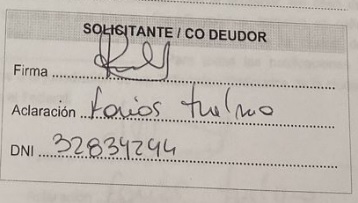 SOLICITANTE / CO DEUDOR
Firma
Aclaración Farios Thelmo
DNI 32834294